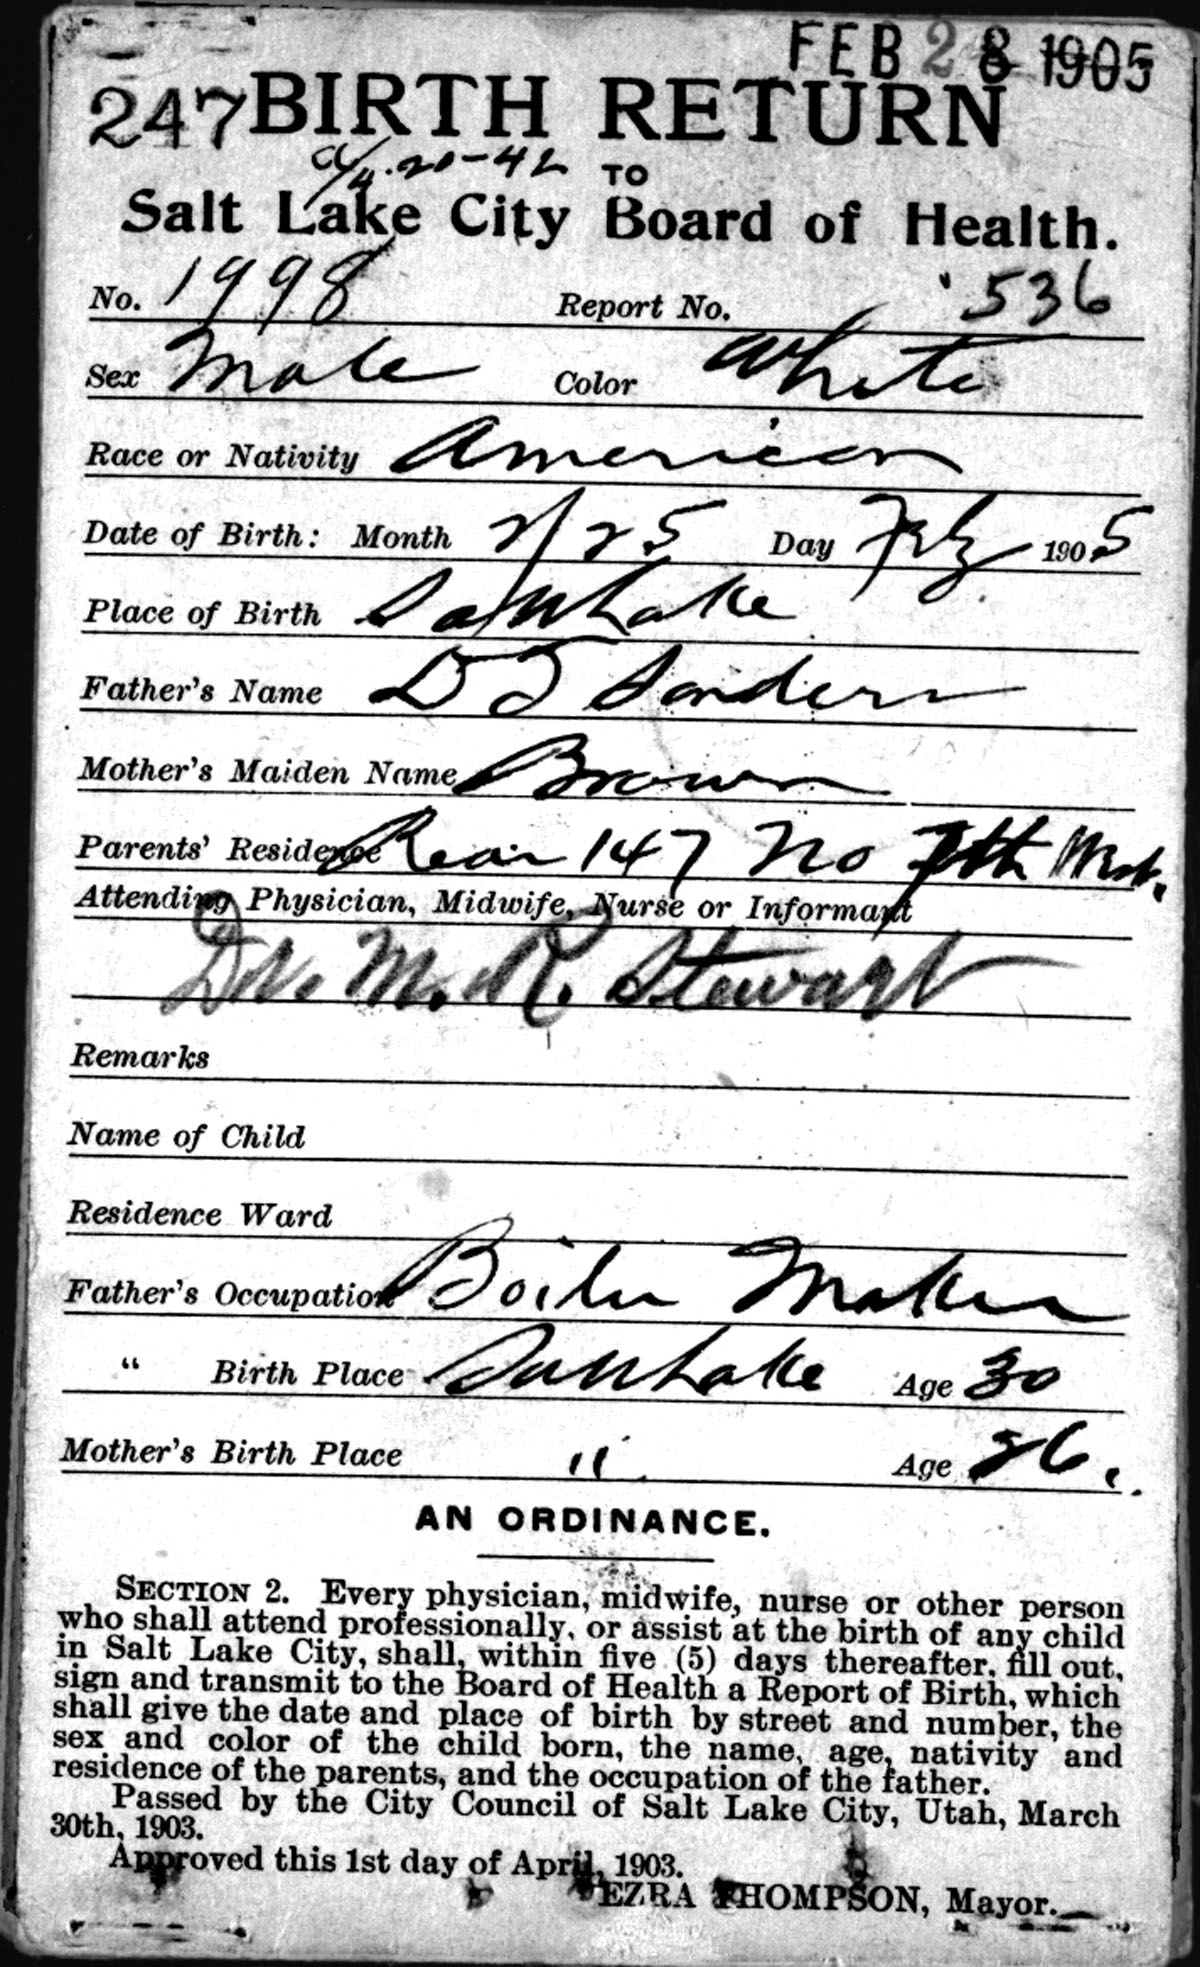 FEB 28 1905
247 BIRTH RETURN
20-42 TO
Salt Lake City Board of Health.
No. 1998 Report No. 536
Sex Male Color White
Race or Nativity American
Date of Birth: Month 2/25 Day Feb 1905
Place of Birth Salt Lake
Father's Name D T Sanders
Mother's Maiden Name Brown
Parents' Residence Rear 147 No 7th West.
Attending Physician, Midwife, Nurse or Informant
Dr. M. R. Stewart
Remarks
Name of Child
Residence Ward
Father's Occupation Boiler Maker
“ Birth Place Salt Lake Age 30
Mother's Birth Place " Age 26.
AN ORDINANCE.
SECTION 2. Every physician, midwife, nurse or other person
who shall attend professionally, or assist at the birth of any child
in Salt Lake City, shall, within five (5) days thereafter, fill out,
sign and transmit to the Board of Health a Report of Birth, which
shall give the date and place of birth by street and number, the
sex and color of the child born, the name, age, nativity and
residence of the parents, and the occupation of the father.
Passed by the City Council of Salt Lake City, Utah, March
30th, 1903.
Approved this 1st day of April, 1903.
EZRA THOMPSON, Mayor.